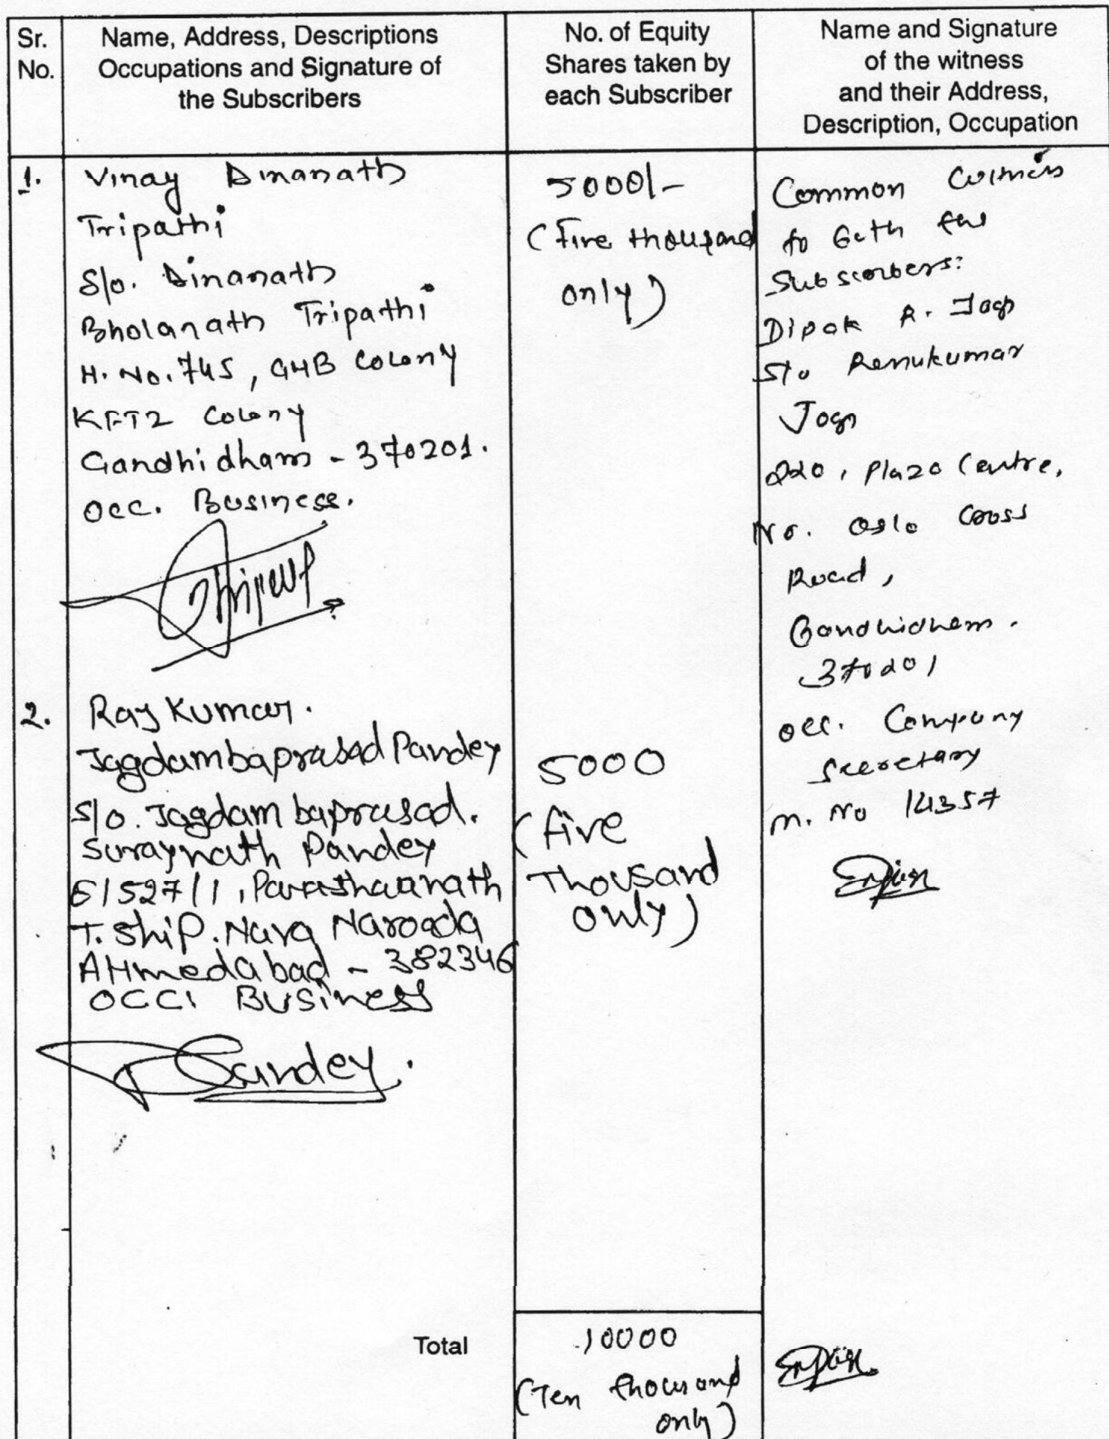 Sr.
No.
Name, Address, Descriptions
Occupations and Signature of
the Subscribers
No. of Equity
Shares taken by
each Subscriber
Name and Signature
of the witness
and their Address,
Description, Occupation
1.
Vinay Dinanath
Tripathi
S/o. Dinanath
Bholanath Tripathi
H. No. 745, GHB Colony
KFTZ Colony
Gandhidham - 370201.
occ. Business.
5000/-
(Five thousand
only)
Common witness
to both the
Subscribers:
Dipak R.
S/o Renukumar
220, Plaza Centre,
Nr. Oslo Cross
Road,
Gandhidham.
370201
occ. Company
Secretary
M. No 14357
2.
Raj Kumar.
Jagdambaprasad Pandey
S/o. Jagdambaprasad.
Surajnath Pandey
527/1, Parashwanath
T. Ship. Nava Naroada
AHmedabad - 382346
OCC: Business
Pandey.
5000
(five
Thousand
only)
Total
10000
(Ten thousand
only)